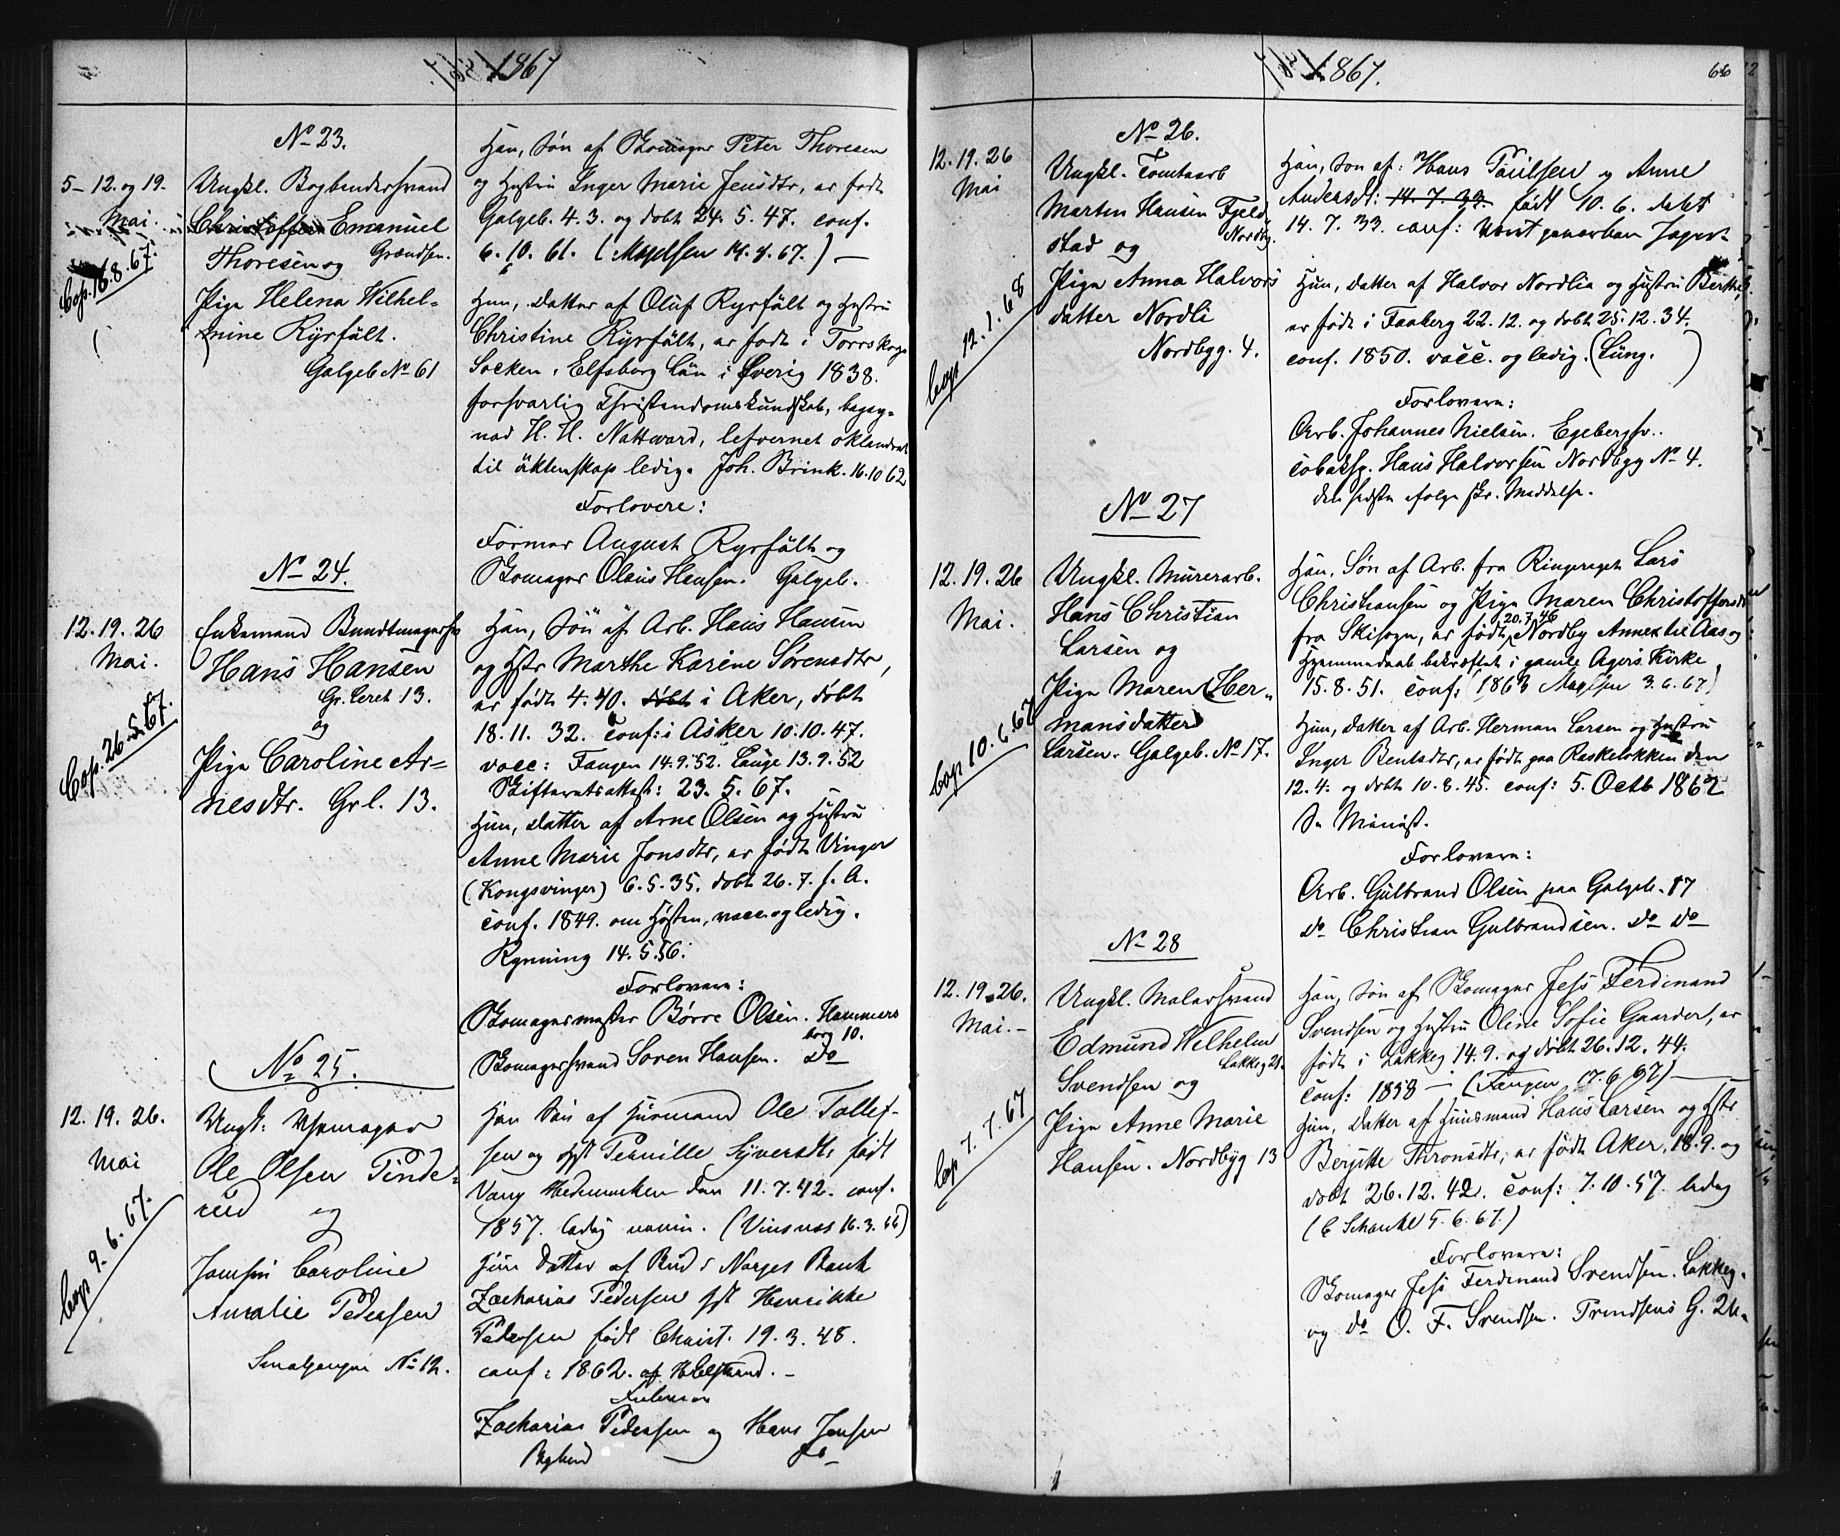 1867
No 23.
5 - 12. og 19.
Mai.
Cop. 16.8.67.
Ungkl. Bogbindersvend
Christoffer Emanuel
Thoresen og Grændsen.
Pige Helena Wilhel-
mine Ryrfält.
Galgeb No 61
Han, Søn af Skomager Peter Thoresen
og Hustru Inger Marie Jensdtr, er født
Galgeb. 4.3. og døbt 24.5.47. conf.
6.10.61. ( 14.4.67.) —
Hun, Datter af Oluf Ryrfält og Hustru
Christine Ryrfält, er født i Torrskogs
Socken, Elfsborg Län i Sverig 1838.
forsvarlig Christendomskundskab, begag-
nad H. H. Nattward, lefvernet oklandrat
til äktenskap ledig. Joh. Brink. 16.10 62
Forlovere:
Former August Ryrfält og
Skomager Olaus Hansen. Galgeb.
No 24.
12. 19. 26
Mai.
Cop. 26.5.67.
Enkemand Bundtmagersv
Hans Hansen
Gr. Leret 13.
og
Pige Caroline Ar-
nesdtr. Grl. 13.
Han, Søn af Arb. Hans Hansen
og Hstr Marthe Karine Sørensdtr,
er født 4.40. døbt i Aker, døbt
18.11.32. Conf: i Asker 10.10.47.
vacc: Fangen 14.9.52. Lange 13.9.52
Skifteretsattest: 23.5.67.
Hun, Datter af Arne Olsen og Hustru
Anne Marie Jonsdtr, er født Vinger
(Kongsvinger) 6.5.35. døbt 26.7. s. A.
conf. 1849. om Høsten, vacc og ledig.
Rynning 14.5.56.
Forlovere:
Skomagermester Børre Olsen. Hammers
borg 10.
Skomagersvend Søren Hansen. Do
No 25.
12. 19. 26.
Mai
Cop 9.6.67.
Ungk:
Ole Olsen Tinde-
rud og
Jomfru Caroline
Amalie Pedersen
Smalgangen No 12.
Han Søn af Huusmand Ole Tollef-
sen og Hst Pernille Syversdtr født
Vang Hedemarken den 11.7.42. conf.
1857. ledig (Vinsnes 16.3.66)
Hun Datter af Bud i Norges Bank
Zacharias Pedersen Hst Henrikke
Pedersen født Christ. 19.3.48.
conf: 1862. af
Forlovere
Zacharias Pedersen og Hans Jensen
Do
1867.
66
No 26.
12. 19. 26
Mai
Cop 12.1.68
Ungkl. Tomtearb
Marten Hansen Fjeld
stad og Nordby.
Pige Anna Halvors
datter Nordli
Nordbyg. 4.
Han, Søn af: Hans Paulsen og Anne
Andersdt: 14.7.33. født 10.6. døbt
14.7.33. conf:
Hun, datter af Halvor Nordlia og Hustru Berthe,
er født i Faaberg 22.12. og døbt 25.12.34.
conf. 1850. vacc. og ledig. (Lüng. )
Forlovere:
Arb. Johannes Nielsen. Egebergsv..
Tobaksp. Hans Halvorsen Nordbyg No 4.
den sidste ifølge skr. Meddelse.
No 27
12. 19. 26
Mai.
Cop 10.6.67
Ungkl. Murerarb.
Hans Christian
Larsen og
Pige Maren (Her-
mansdatter)
Larsen. Galgeb. No 17.
Han, Søn af Arb. fra Ringeriget Lars
Christiansen og Pige Maren Christoffersdt
fra Skisogn, er født 20.7.46 Nordby Annex til Aas og
Hjemmedaab bekræftet i gamle Agers Kirke
15.8.51. conf: 1863 3.6.67)
Hun, Datter af Arb. Herman Larsen og Hustru
Inger Bentsdtr, er født paa Raskeløkken den
12.4. og døbt 10.8.45. conf: 5. Octb 1862
Forlovere:
Arb. Gulbrand Olsen paa Galgeb. 17
do Christian Gulbrandsen. Do Do
No 28
12. 19. 26.
Mai. -
Cop 7.7.67
Ungkl. Malersvend
Edmund Wilhelm
Lakkeg 21.
Svendsen og
Pige Anne Marie
Hansen. Nordbyg 13
Han, Søn af Skomager Jess Ferdinand
Svendsen og Hustru Oline Sofie Gaarder, er
født i Lakkeg 14.9. og døbt 26.12.44.
Conf: 1858 — (Fangen 17.6.67) —
Hun, Datter af Huusmand Hans Larsen og Hstr
Berjitte Thronsdtr, er født Aker, 18.9. og
døbt 26.12.42. Conf: 7.10.57. ledig
(C Schankl 5.6.67.)
Forlovere:
Skomager Jess Ferdinand Svendsen. Lakkeg.
og do O. F. Svendsen.